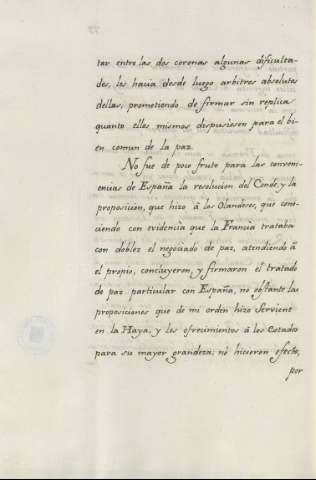 tar entre las dos coronas algunas dificulta-
des, los hacia desde luego arbitros absolutos
dellas; prometiendo de firmar sin replica
quanto ellos mismos dispusiesen para el bi-
en comun de la paz.
No fue de poco fruto para las conveni-
encias de España la resolucion del Conde, y la
proposicion, que hizo á los Olandeses, que cono-
ciendo con evidencia que la Francia trataba
con doblez el negociado de paz, atendiendo á
el propio, concluyeron, y firmaron el tratado
de paz particular con España, no obstante las
proposiciones que de mi orden hizo Servient
en la Haya, y los ofrecimientos á los Estados
para su mayor grandeza; no hicieron efecto,
por